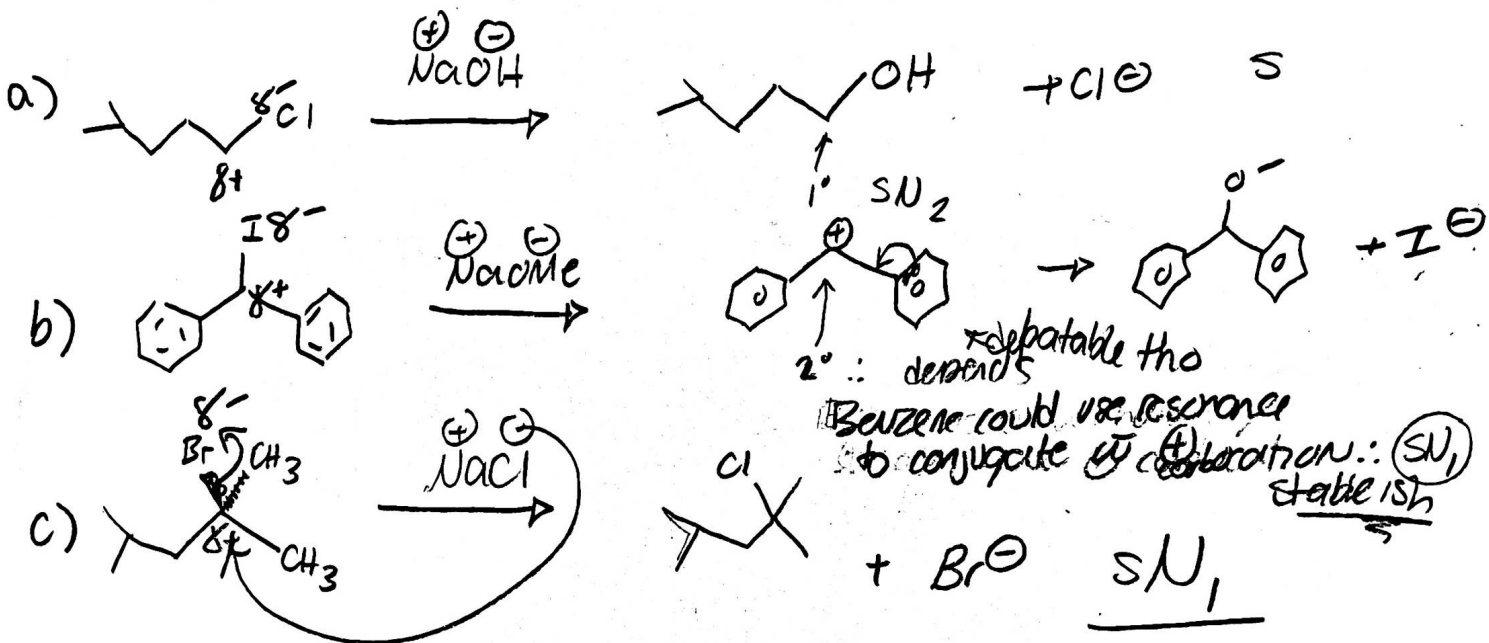 a) δ- Cl δ+ ⊕ ⊖ NaOH OH + Cl⊖ S
1° SN2
b) I δ- δ+ ⊕ ⊖ NaOMe ⊕ O- + I⊖
2° ∴ depends *debatable tho
Benzene could use resonance
to conjugate w̄ ⊕ carbocation ∴ SN1
stable ish
c) δ- Br CH3 δ+ CH3 ⊕ ⊖ NaCl Cl + Br⊖ SN1